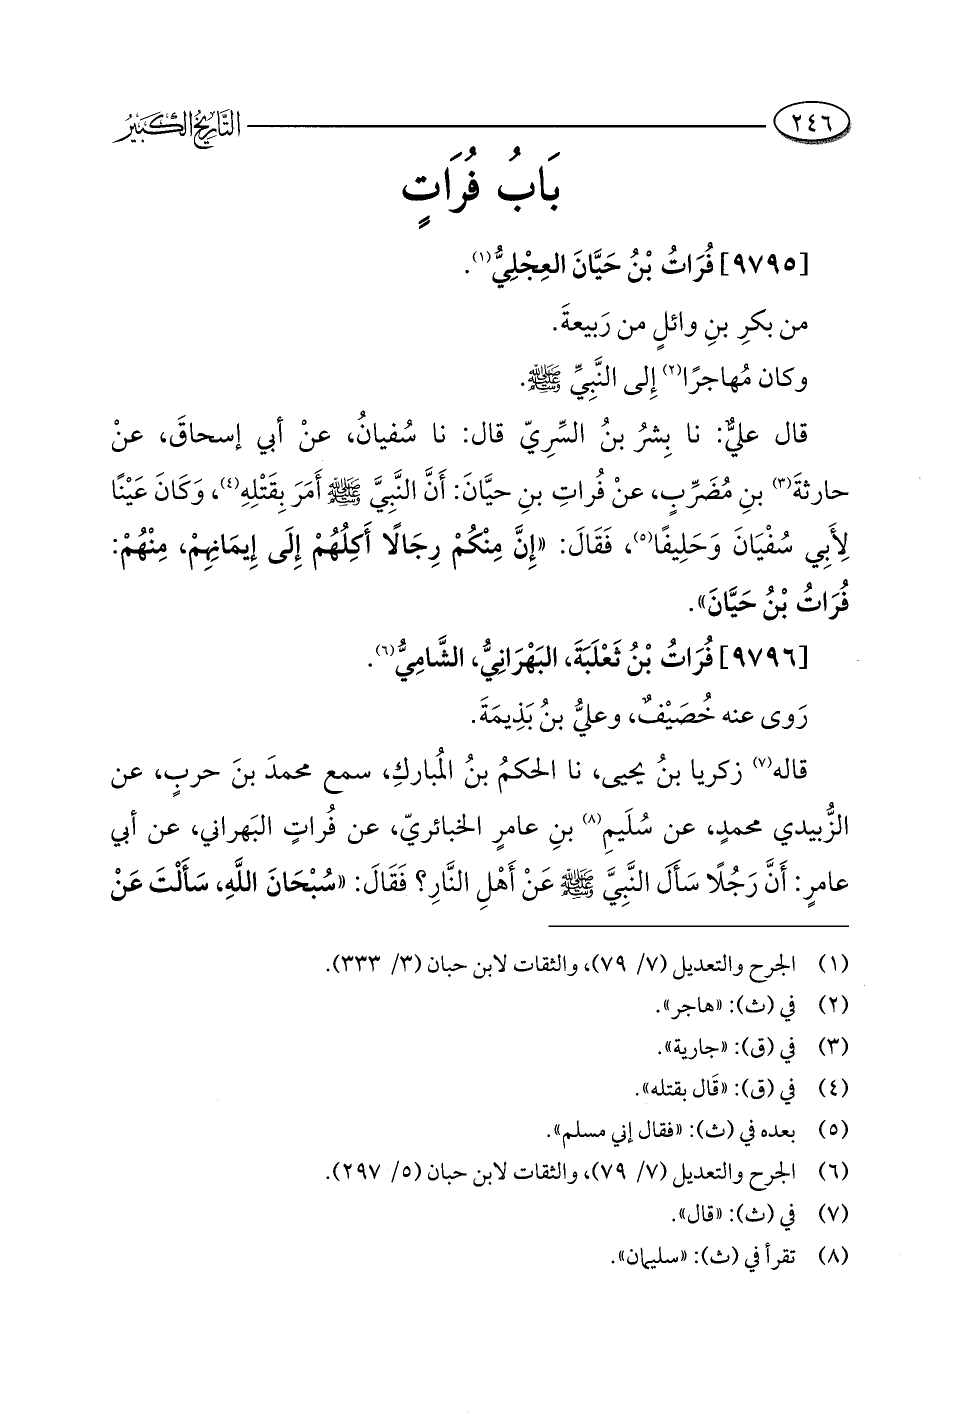 ٢٤٦ التاريخ الكبير
بَابُ فُرَاتٍ
[٩٧٩٥] فُرَاتُ بْنُ حَيَّانَ العِجْلِيُّ(١).
من بكرِ بنِ وائلٍ من رَبيعةَ.
وكان مُهاجرًا(٢) إلى النَّبِيِّ ﷺ.
قال عليٌّ: نا بِشرُ بنُ السِّرِيّ قال: نا سُفيانُ، عنْ أبي إسحاقَ، عنْ
حارثةَ(٣) بنِ مُضَرِّبٍ، عنْ فُراتِ بنِ حيَّانَ: أَنَّ النَّبِيَّ ﷺ أَمَرَ بِقَتْلِهِ(٤)، وَكَانَ عَيْنًا
لِأَبِي سُفْيَانَ وَحَلِيفًا(٥)، فَقَالَ: «إِنَّ مِنْكُمْ رِجَالًا أَكِلُهُمْ إِلَى إِيمَانِهِمْ، مِنْهُمْ:
فُرَاتُ بْنُ حَيَّانَ».
[٩٧٩٦] فُرَاتُ بْنُ ثَعْلَبَةَ، البَهْرَانِيُّ، الشَّامِيُّ(٦).
رَوى عنه خُصَيْفٌ، وعليُّ بنُ بَذِيمَةَ.
قاله(٧) زكريا بنُ يحيى، نا الحكمُ بنُ المُباركِ، سمع محمدَ بنَ حربٍ، عن
الزُّبيدي محمدٍ، عن سُلَيمِ(٨) بنِ عامرٍ الخبائريّ، عن فُراتٍ البَهراني، عن أبي
عامرٍ: أَنَّ رَجُلًا سَأَلَ النَّبِيَّ ﷺ عَنْ أَهْلِ النَّارِ؟ فَقَالَ: «سُبْحَانَ اللَّهِ، سَأَلْتَ عَنْ
(١) الجرح والتعديل (٧/ ٧٩)، والثقات لابن حبان (٣/ ٣٣٣).
(٢) في (ث): «هاجر».
(٣) في (ق): «جارية».
(٤) في (ق): «قَال بقتله».
(٥) بعده في (ث): «فقال إني مسلم».
(٦) الجرح والتعديل (٧/ ٧٩)، والثقات لابن حبان (٥/ ٢٩٧).
(٧) في (ث): «قال».
(٨) تقرأ في (ث): «سليمان».